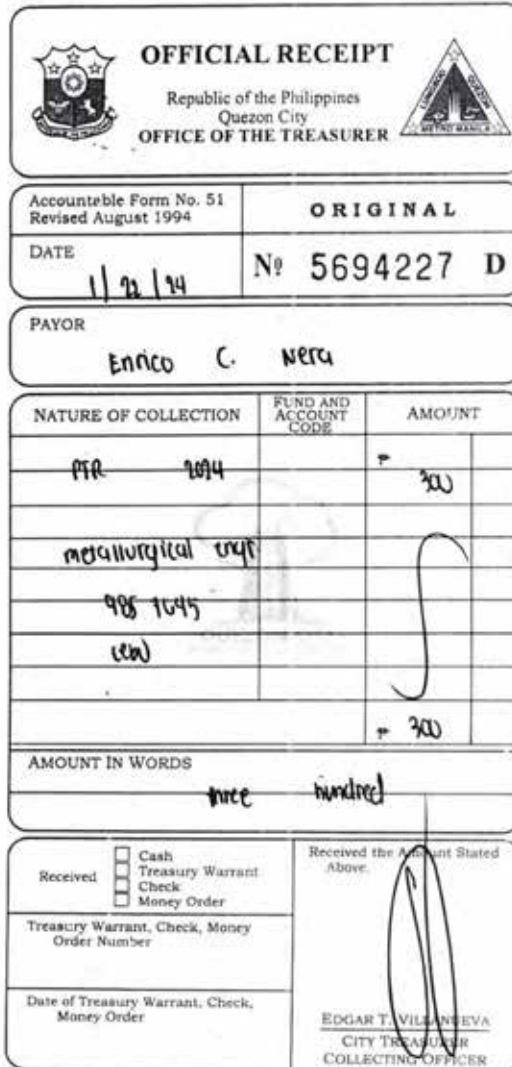 OFFICIAL RECEIPT
Republic of the Philippines
Quezon City
OFFICE OF THE TREASURER
LUNGSOD QUEZON
METRO MANILA
Accountable Form No. 51
Revised August 1994
ORIGINAL
DATE
1/22/24
Nº 5694227 D
PAYOR
Enrico C. Nera
NATURE OF COLLECTION
FUND AND ACCOUNT CODE
AMOUNT
PTR 2024
₱ 300
metallurgical engr
₱ 300
AMOUNT IN WORDS
three hundred
Received
Cash
Treasury Warrant
Check
Money Order
Received the Amount Stated
Above.
Treasury Warrant, Check, Money
Order Number
Date of Treasury Warrant, Check,
Money Order
EDGAR T. VILLANUEVA
CITY TREASURER
COLLECTING OFFICER